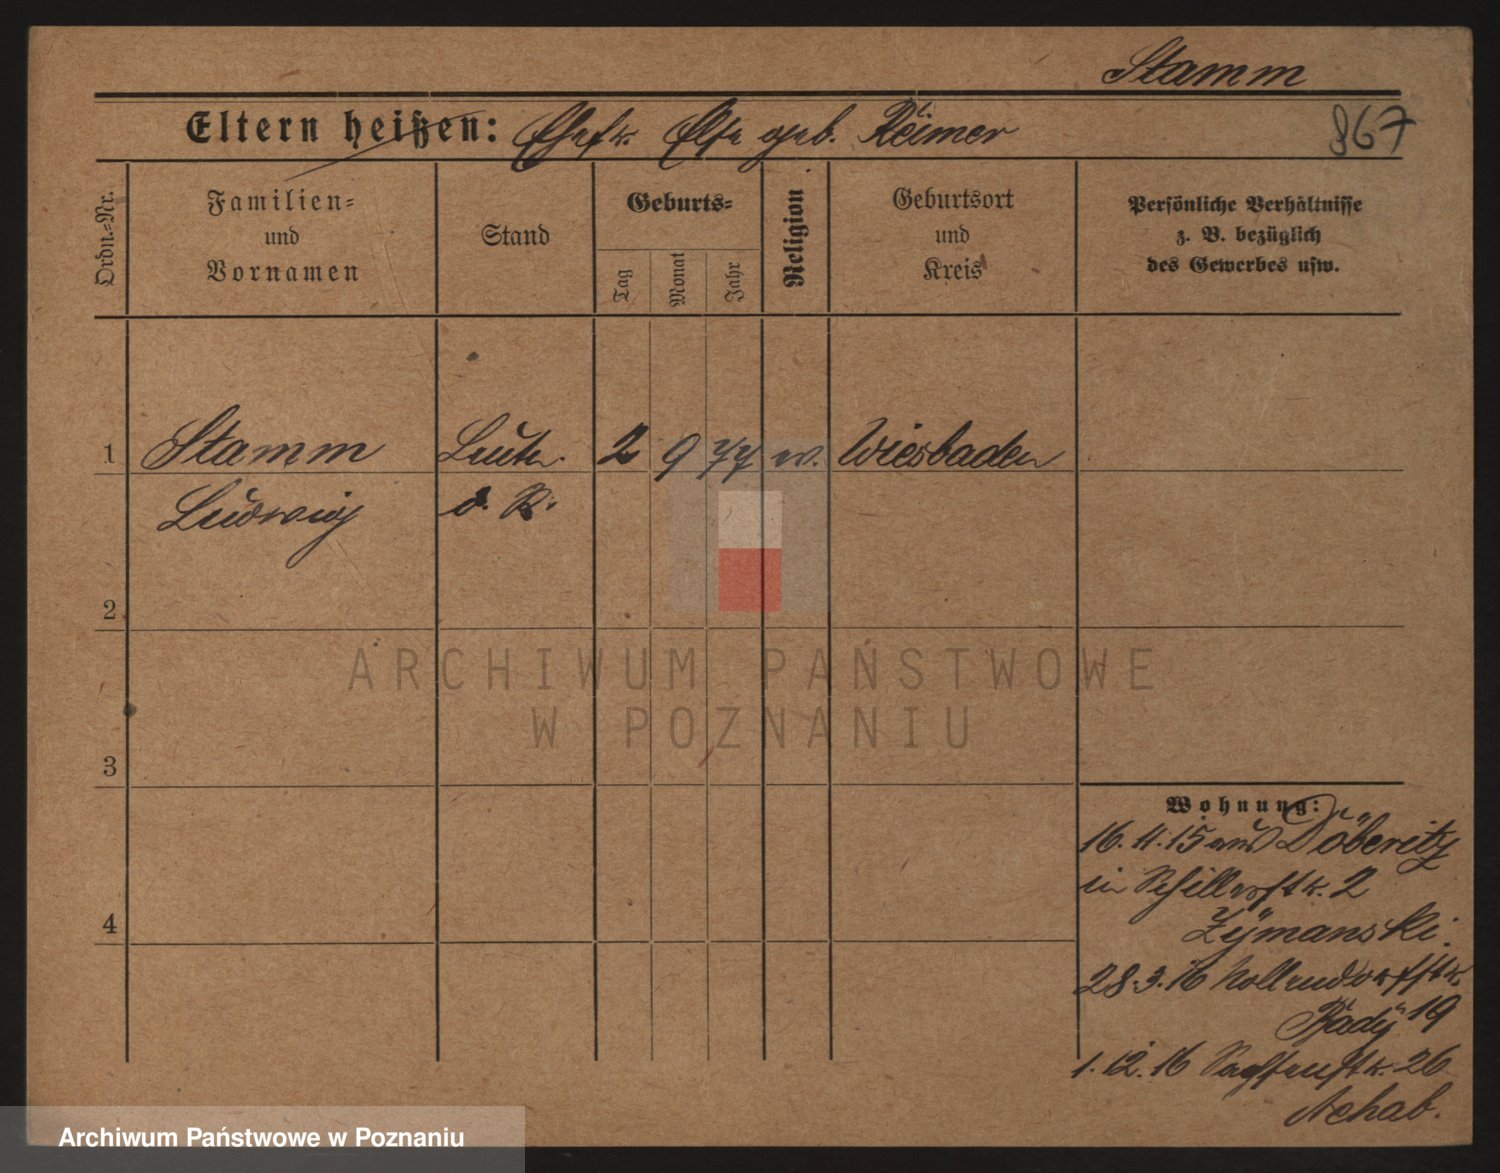 Stamm
867
Eltern heißen: Ehefr. Else geb. Reimer
Ordn.=Nr.
Familien=
und
Vornamen
Stand
Geburts=
Tag
Monat
Jahr
Religion
Geburtsort
und
Kreis
Persönliche Verhältnisse
z. B. bezüglich
des Gewerbes usw.
1 Stamm Leutn. 2 9 77 ev. Wiesbaden
Ludwig d. R.
2
3
4
Wohnung:
16.11.15 aus Döberitz
in Schillerstr. 2
Zymanski.
28.3.16 Hollendorffstr.
19
1.12.16 Sachsenstr. 26
ARCHIWUM PAŃSTWOWE
W POZNANIU
Archiwum Państwowe w Poznaniu